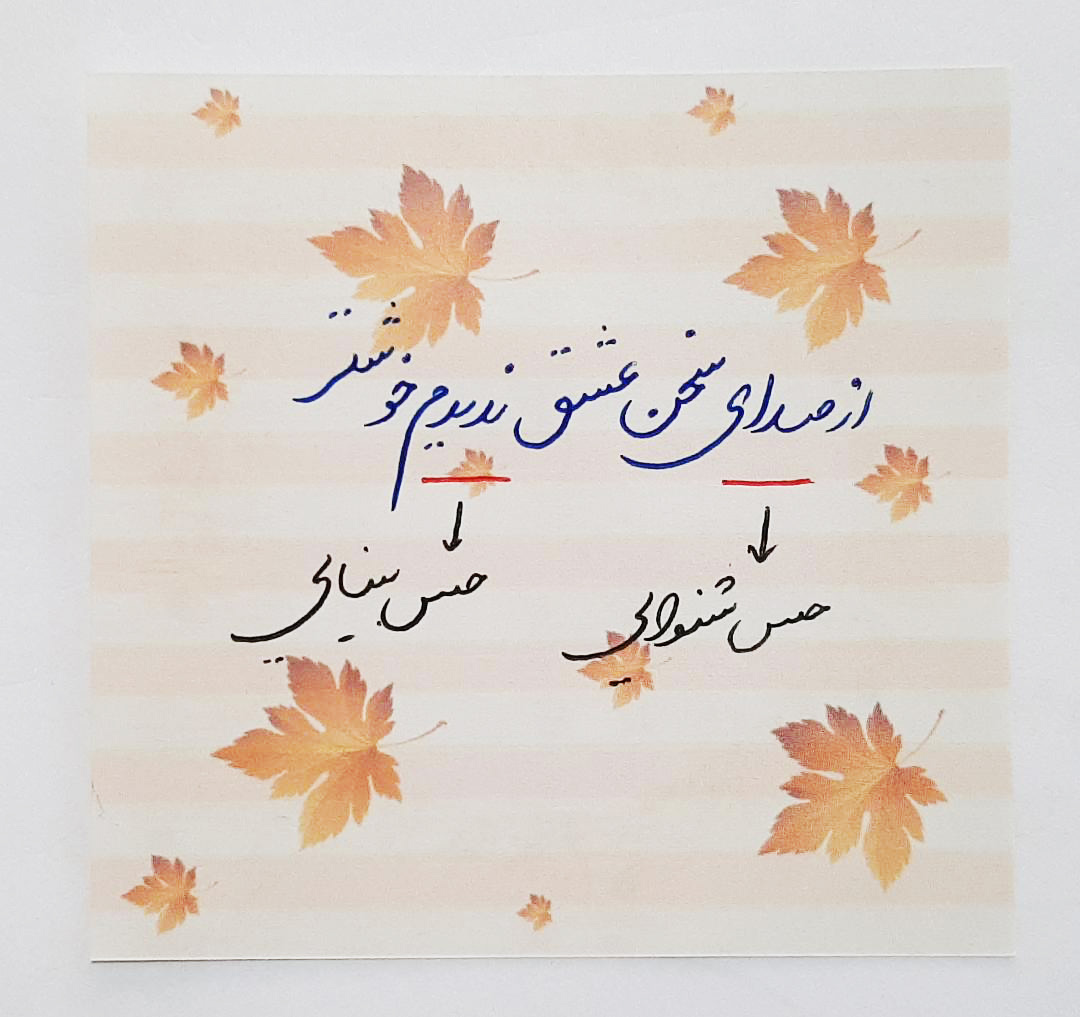 از صدای سخن عشق ندیدم خوشتر
حس شنوایی
حس بینایی